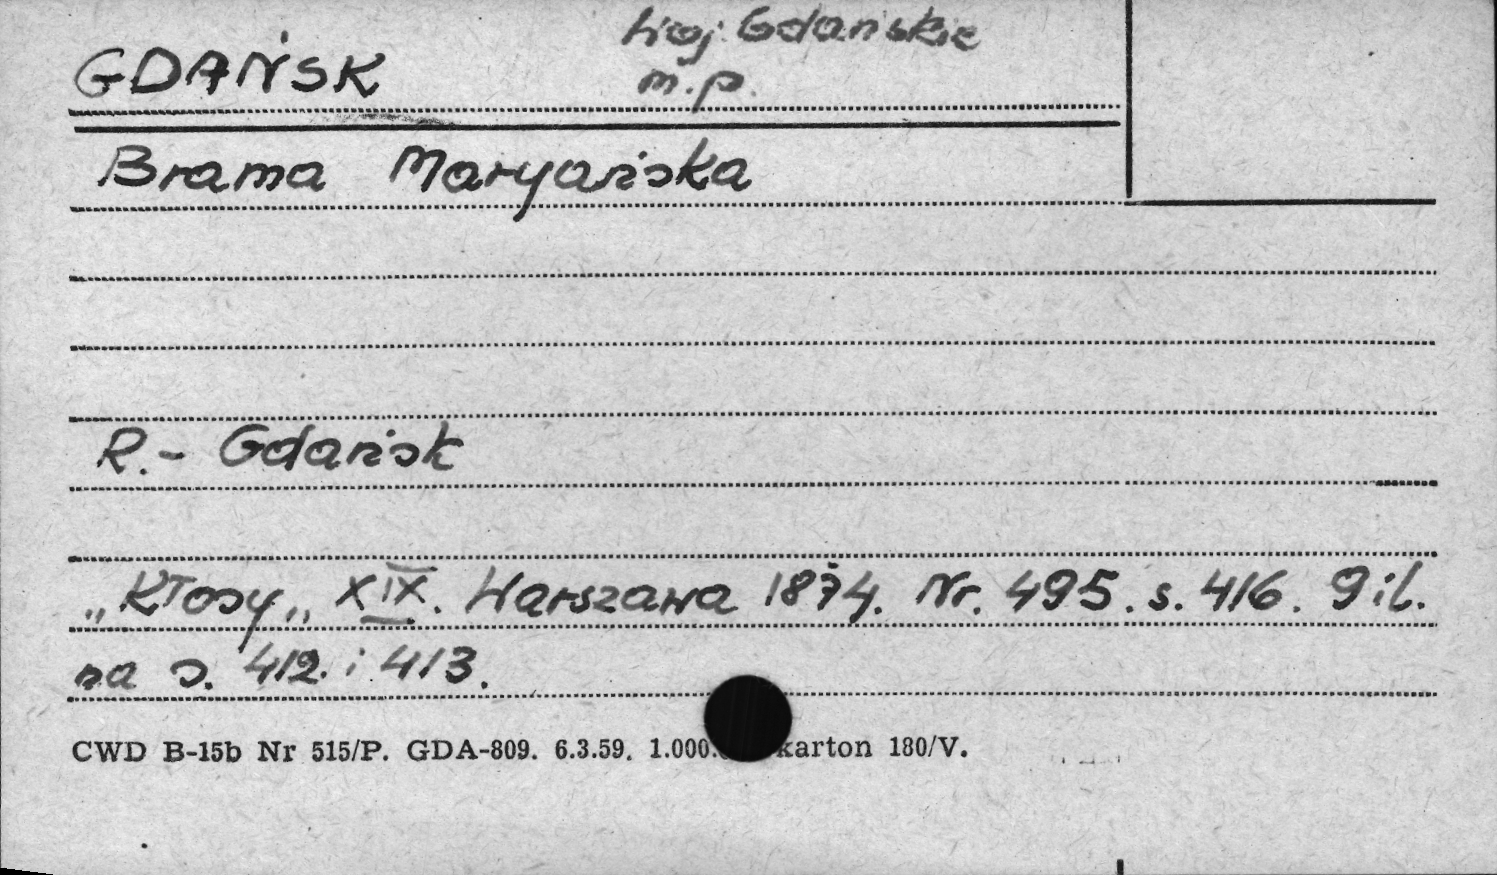 GDAŃSK
Woj. Gdańskie
m.p.
Brama Maryańska
R.- Gdańsk
„Kłosy„ XIX. Warszawa 1874. Nr. 495. s. 416. 9 il.
na s. 412. i 413.
CWD B-15b Nr 515/P. GDA-809. 6.3.59. 1.000. karton 180/V.